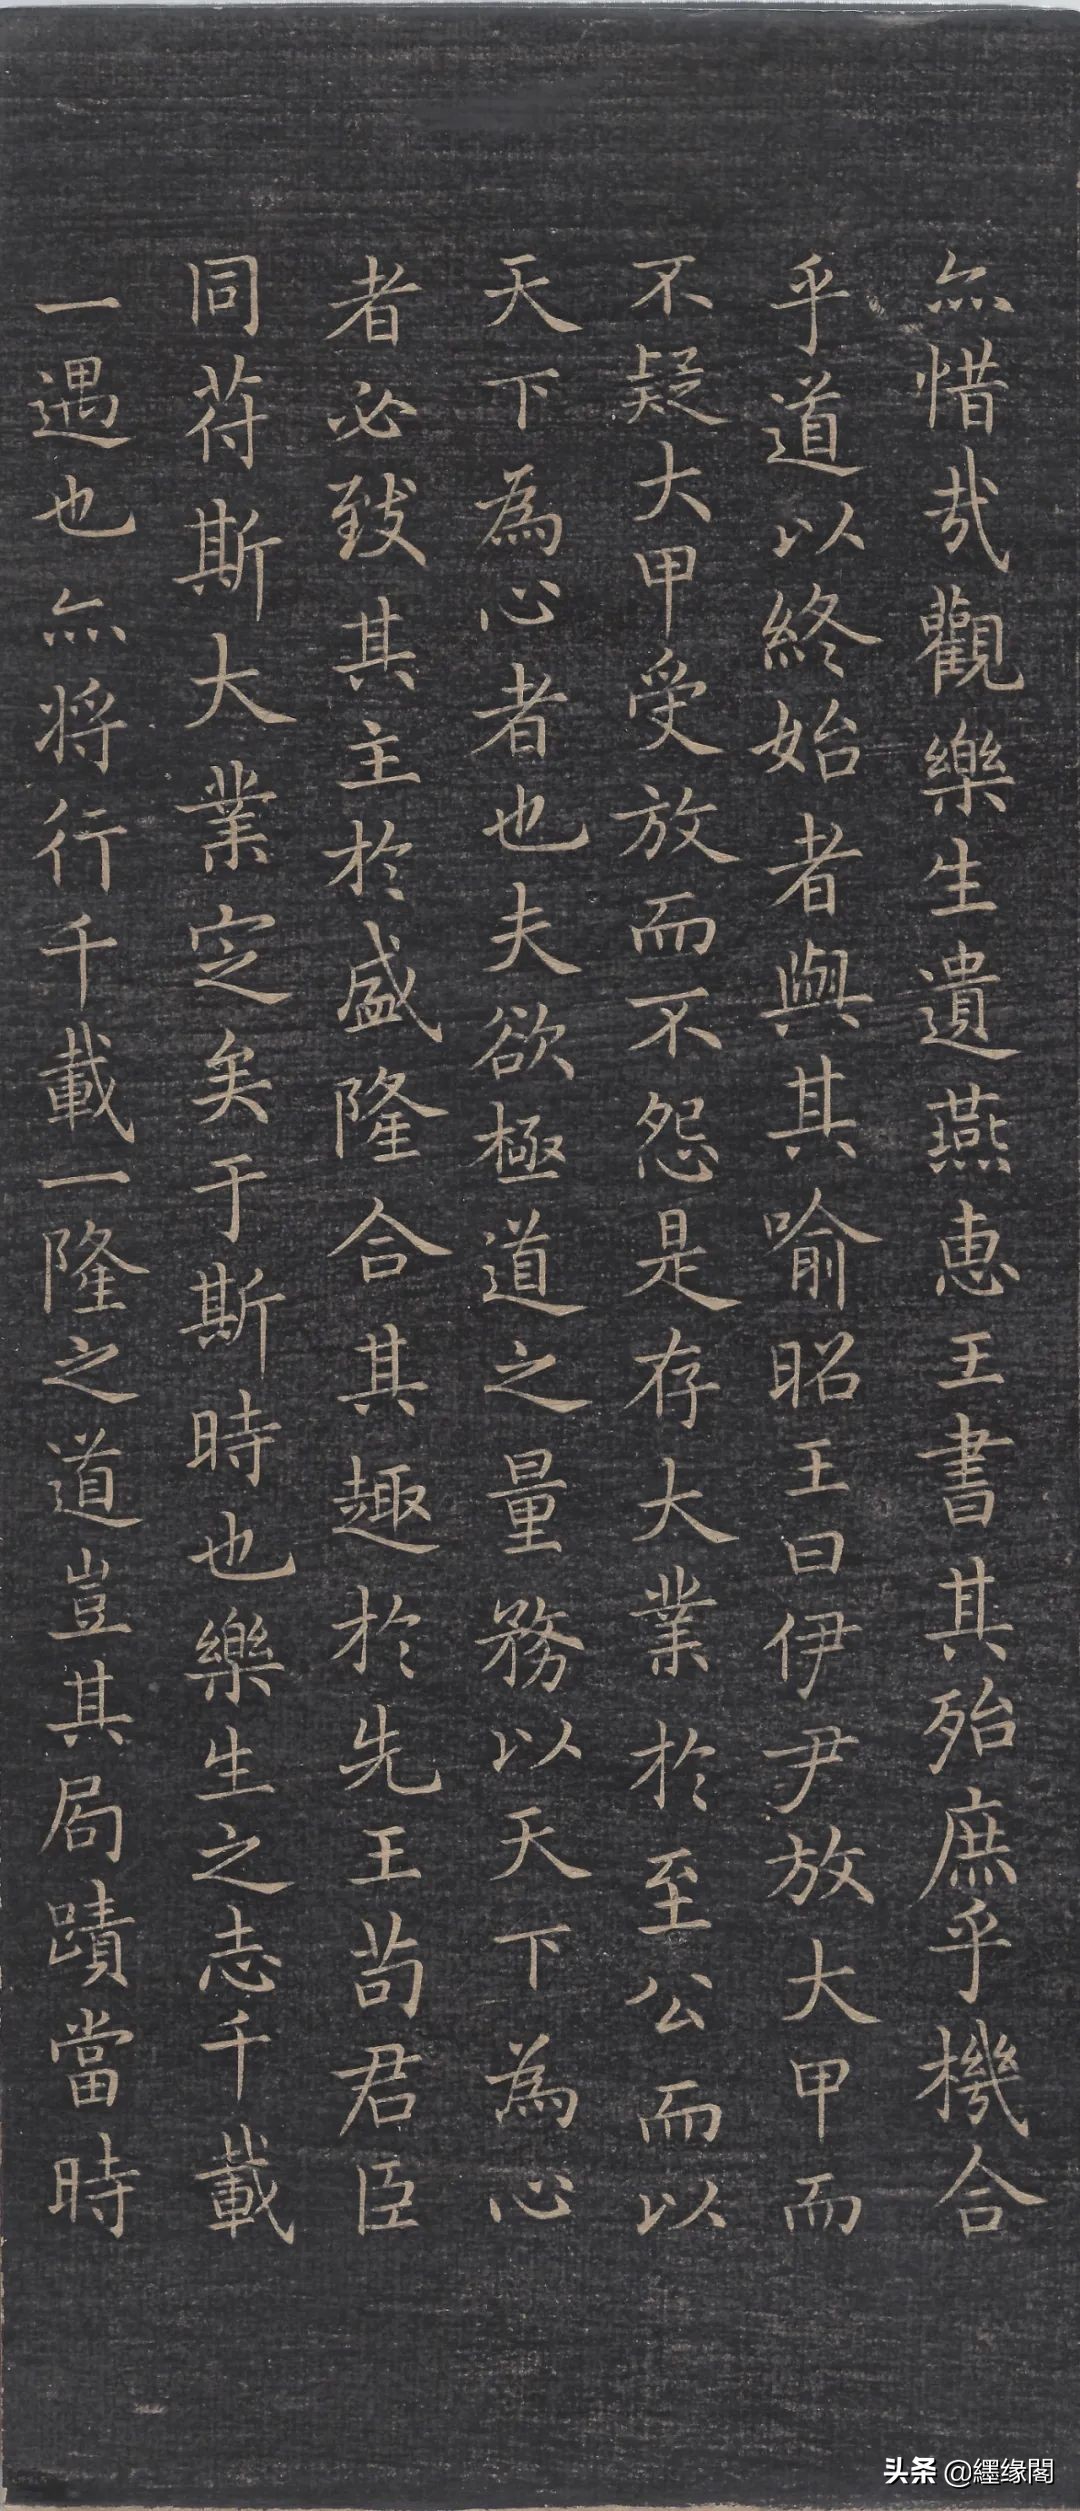 亦惜哉觀樂生遺燕惠王書其殆庶乎機合
乎道以終始者與其喻昭王曰伊尹放大甲而
不疑大甲受放而不怨是存大業於至公而以
天下為心者也夫欲極道之量務以天下為心
者必致其主於盛隆合其趣於先王苟君臣
同苻斯大業定矣于斯時也樂生之志千載
一遇也亦將行千載一隆之道豈其局蹟當時
头条 @纆缘閣